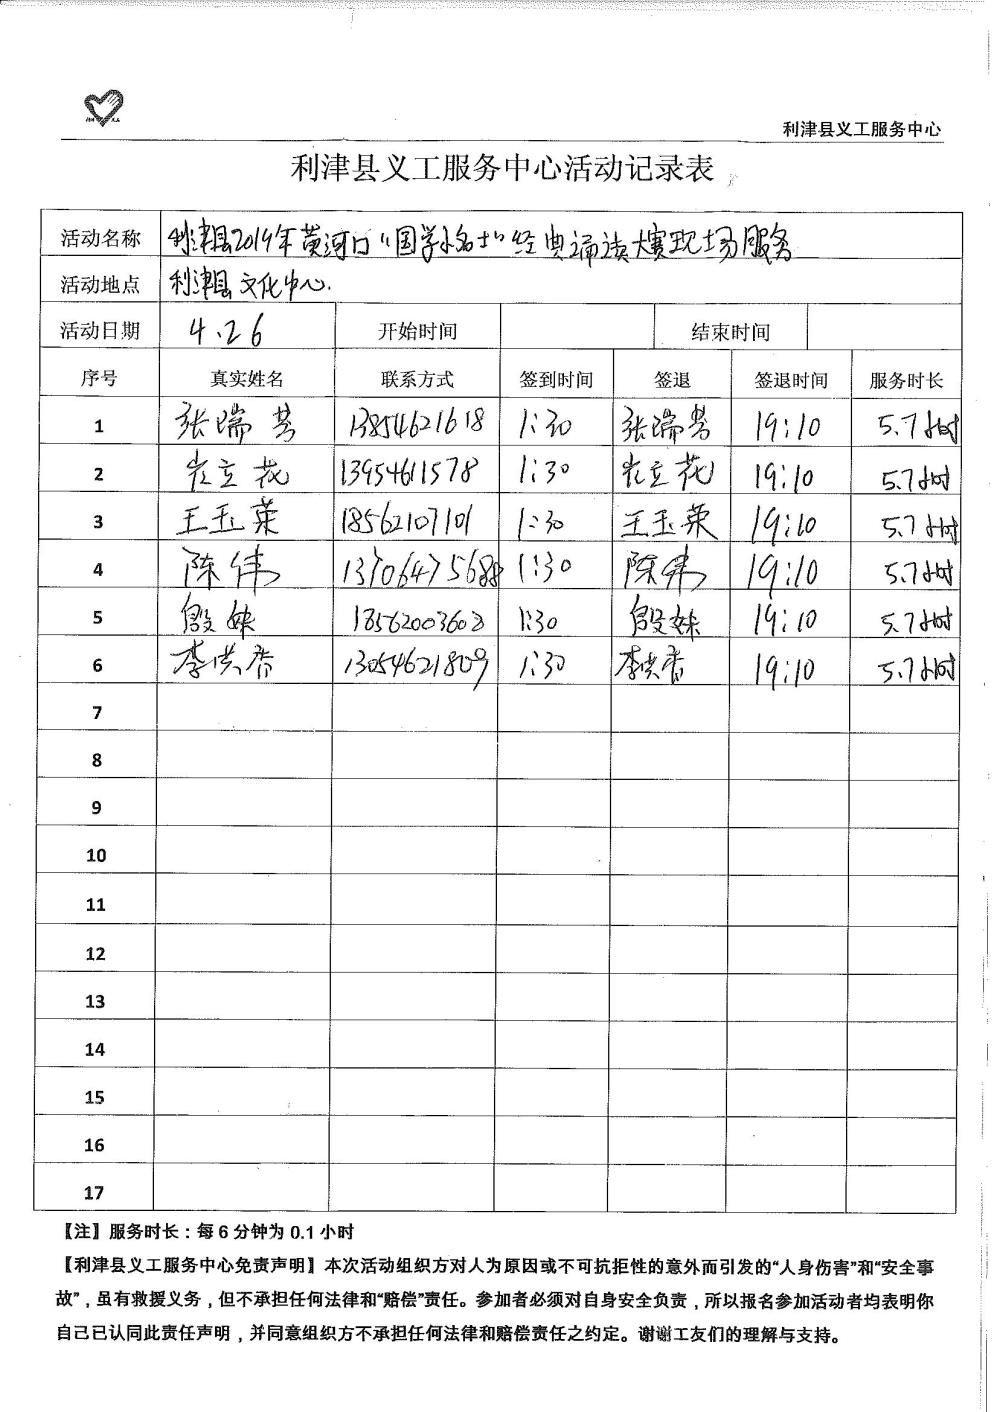 利津县义工服务中心
利津县义工服务中心活动记录表
活动名称 利津县2019年黄河口“国学小名士”经典诵读大赛现场服务
活动地点 利津县文化中心.
活动日期 4.26 开始时间 结束时间
序号 真实姓名 联系方式 签到时间 签退 签退时间 服务时长
1 张瑞芳 13854621618 1:30 张瑞芳 19:10 5.7小时
2 崔立花 13954611578 1:30 崔立花 19:10 5.7小时
3 王玉荣 18562107101 1:30 王玉荣 19:10 5.7小时
4 陈伟 1:30 陈伟 19:10 5.7小时
5 殷姝 18562003608 1:30 殷姝 19:10 5.7小时
6 李洪香 13054621809 1:30 李洪香 19:10 5.7小时
7
8
9
10
11
12
13
14
15
16
17
【注】服务时长：每6分钟为0.1小时
【利津县义工服务中心免责声明】本次活动组织方对人为原因或不可抗拒性的意外而引发的“人身伤害”和“安全事
故”，虽有救援义务，但不承担任何法律和“赔偿”责任。参加者必须对自身安全负责，所以报名参加活动者均表明你
自己已认同此责任声明，并同意组织方不承担任何法律和赔偿责任之约定。谢谢工友们的理解与支持。